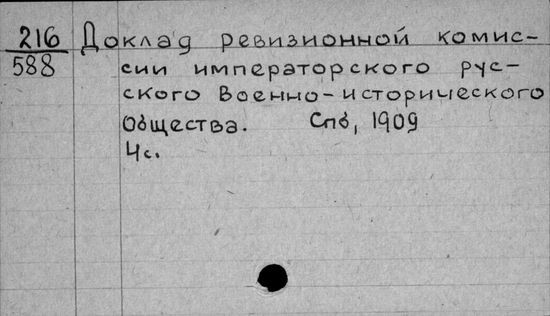 216 Доклад ревизионной комис-
588 сии императорского рус-
ского Военно-исторического
Общества. Спб, 1909
4с.